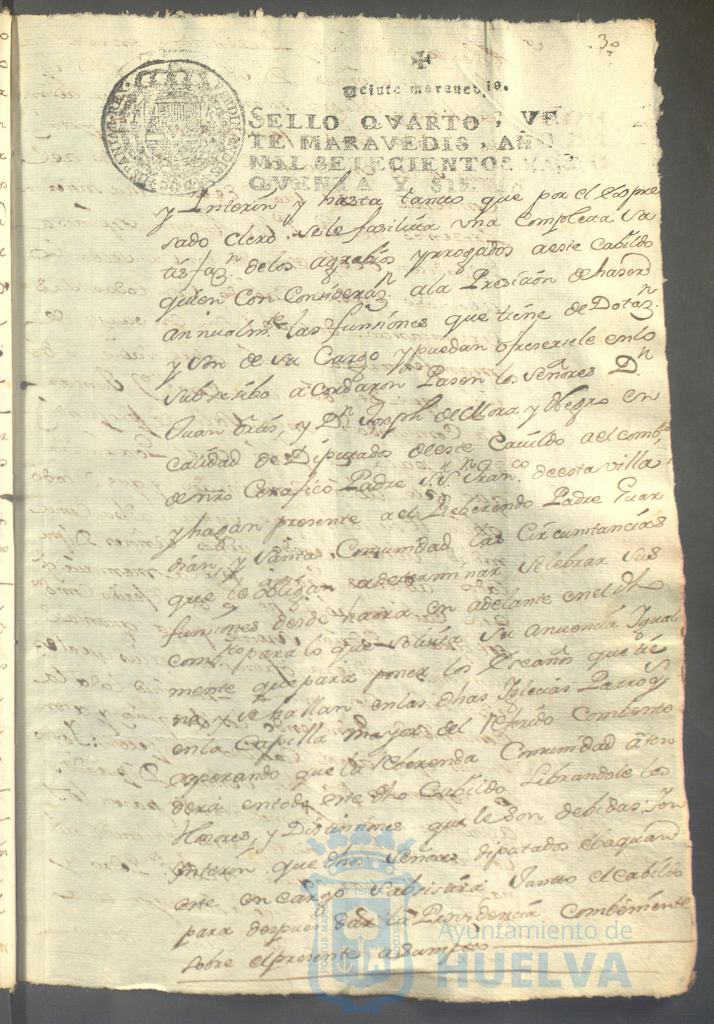 30
Veinte maravedis.
SELLO QVARTO, VE
TE MARAVEDIS, AÑO
MIL SETECIENTOS
QVENTA Y SI
y Interin y hasta tanto que por el Expre
sado Clero se le fasilita una Completa Sa
tisfaz.n de los agrabios yrrogados a este Cabildo
quien Con Consideraz.n a la Presicion de haser
annualm.te las funsiones que tiene de Dotaz.n
y son de su Cargo y puedan ofreserele en lo
subsesibo acordaron Pasen los Señores D.n
Juan y D.n Joseph de Mora y Negro en
Calidad de Diputados de este Cavildo a el comb.to
de nro Cerafico Padre S.n Fran.co de esta villa
y hagan presente a el Reberendo Padre Guar
dian, y Santa Comunidad las Circunstancias
que le obligan a determinar Selebrar sus
funsiones desde haora en adelante en el dho
comb.to para lo que solisita su anuencia Igual
mente que para poner los Escaños que tie
ne y se hallan en las dhas Iglesias Parroq.s
en la Capilla mayor del referido Combento
esperando que la Reberenda Comunidad aten
dera en todo a este dho Cabildo Librandole los
Honores, y Distinsiones que le son debidas: Con
interin que dhos Señores diputados ebaquan
este encargo Jamas el Cabildo
para despues dar la Providencia Combeniente
sobre el presente asumpto
Ayuntamiento de
HUELVA